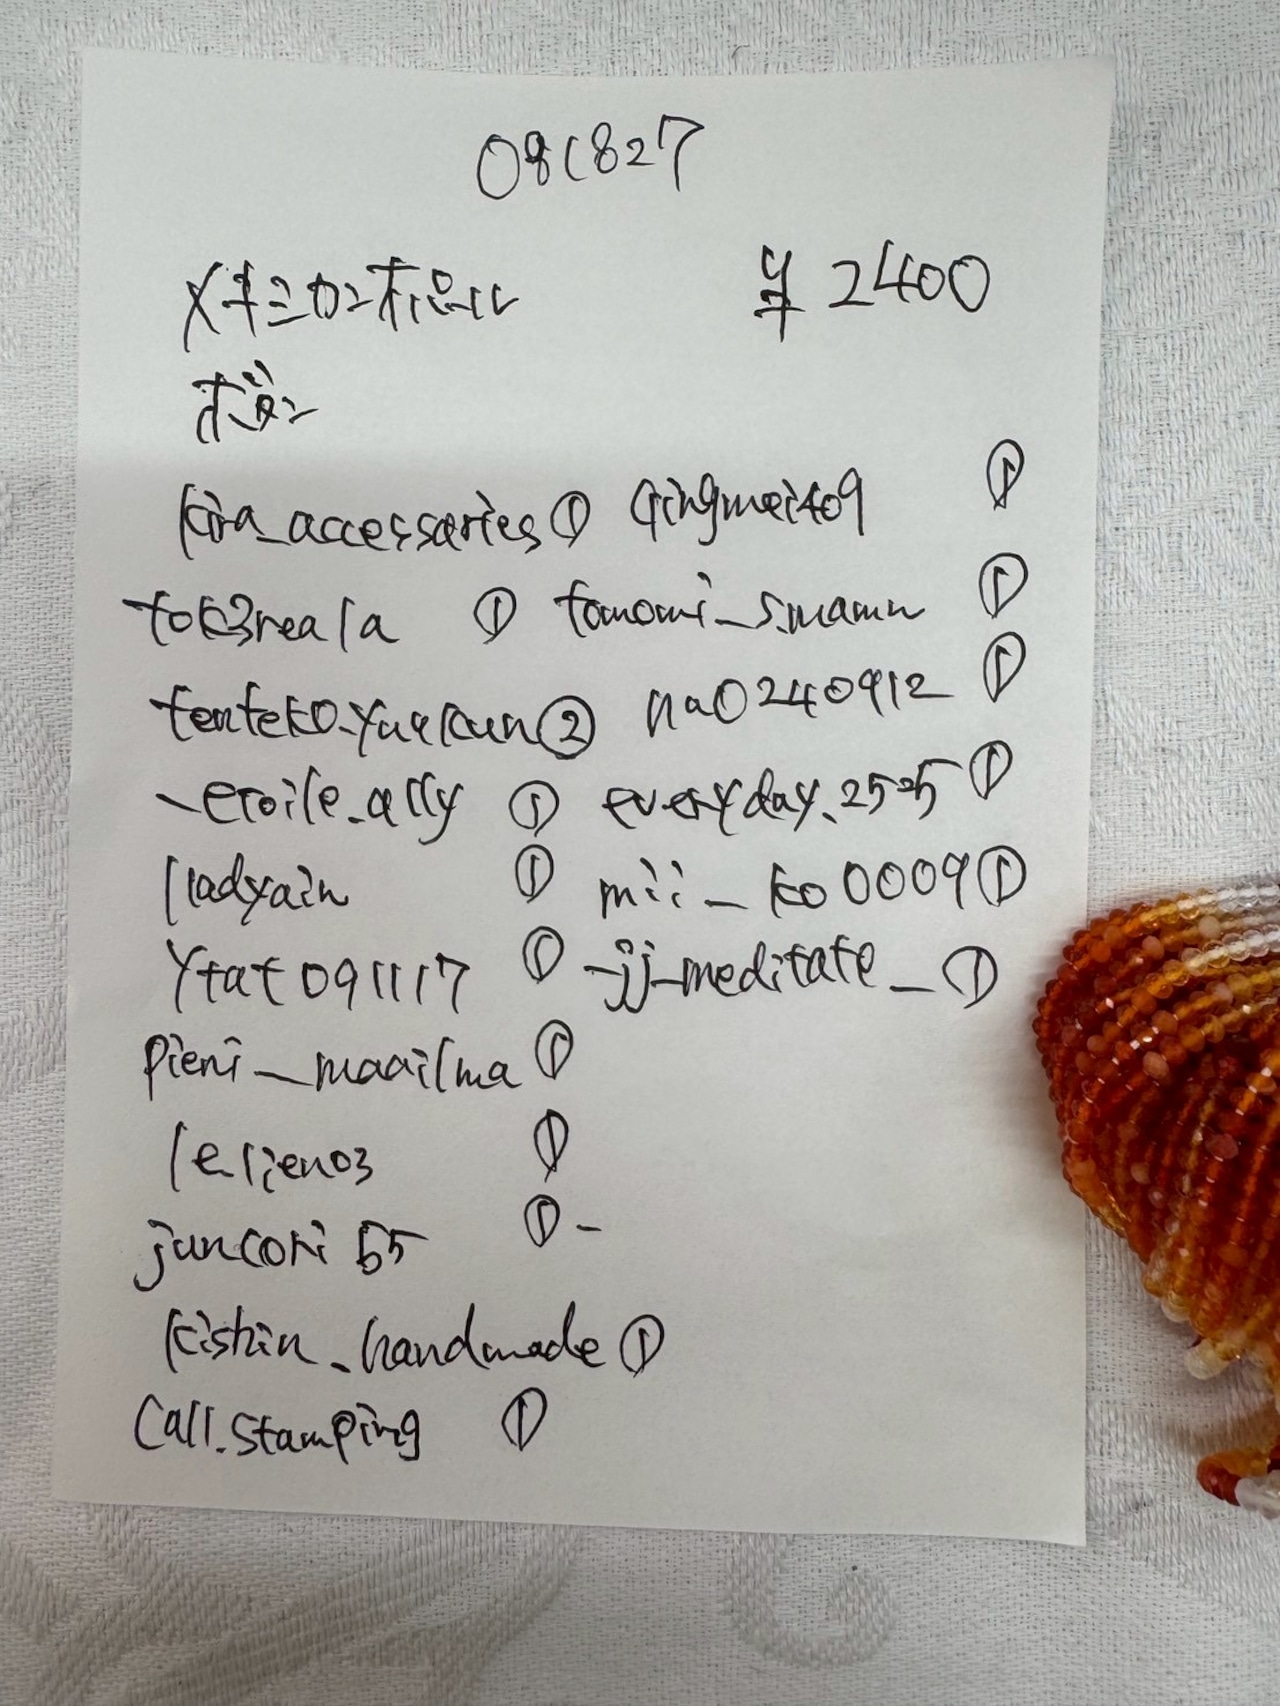 081827
メキシカンオパール ¥2400
ボタン
kira_accessaries① qingmei409 ①
tok3reala ① tomomi_s.mamu ①
tenteko.yuukun② na0240912 ①
_etoile.ally ① everyday.2525 ①
lladyain ① mii_ko0009①
ytat091117 ① _jj_meditate_①
pieni_maailma ①
le.lien03 ①
juncori55 ①-
kishin_handmade①
Call.stamping ①